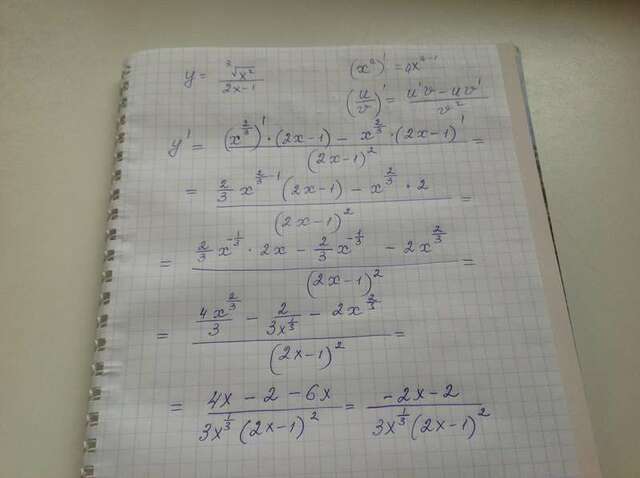 y = ∛x² / (2x-1)    (xⁿ)' = nxⁿ⁻¹
(u/v)' = (u'v - uv') / v²
y' = ((x^(2/3))' · (2x-1) - x^(2/3) · (2x-1)') / (2x-1)² =
= (2/3 x^(2/3 - 1) (2x-1) - x^(2/3) · 2) / (2x-1)² =
= (2/3 x^(-1/3) · 2x - 2/3 x^(-1/3) - 2x^(2/3)) / (2x-1)² =
= (4x^(2/3)/3 - 2/(3x^(1/3)) - 2x^(2/3)) / (2x-1)² =
= (4x - 2 - 6x) / (3x^(1/3) (2x-1)²) = (-2x-2) / (3x^(1/3) (2x-1)²)